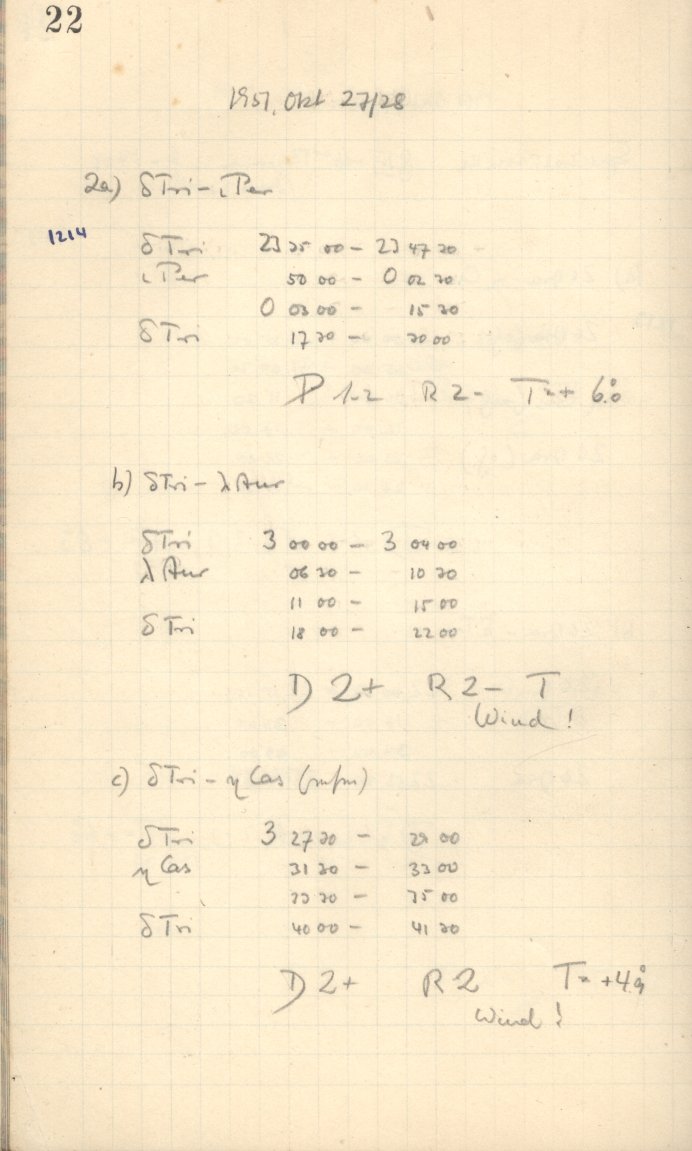 22
1951, Okt 27/28
2a) δ Tri – ι Per
1214
δ Tri 23 35 00 – 23 47 30
ι Per 50 00 – 0 02 30
0 03 00 – 15 30
δ Tri 17 30 – 30 00
D 1-2 R 2– T = + 6.°0
b) δ Tri – λ Aur
δ Tri 3 00 00 – 3 04 00
λ Aur 06 30 – 10 30
11 00 – 15 00
δ Tri 18 00 – 22 00
D 2+ R 2– T
Wind!
c) δ Tri – η Cas
δ Tri 3 27 30 – 29 00
η Cas 31 30 – 33 00
33 30 – 35 00
δ Tri 40 00 – 41 30
D 2+ R 2 T = +4.°9
Wind!